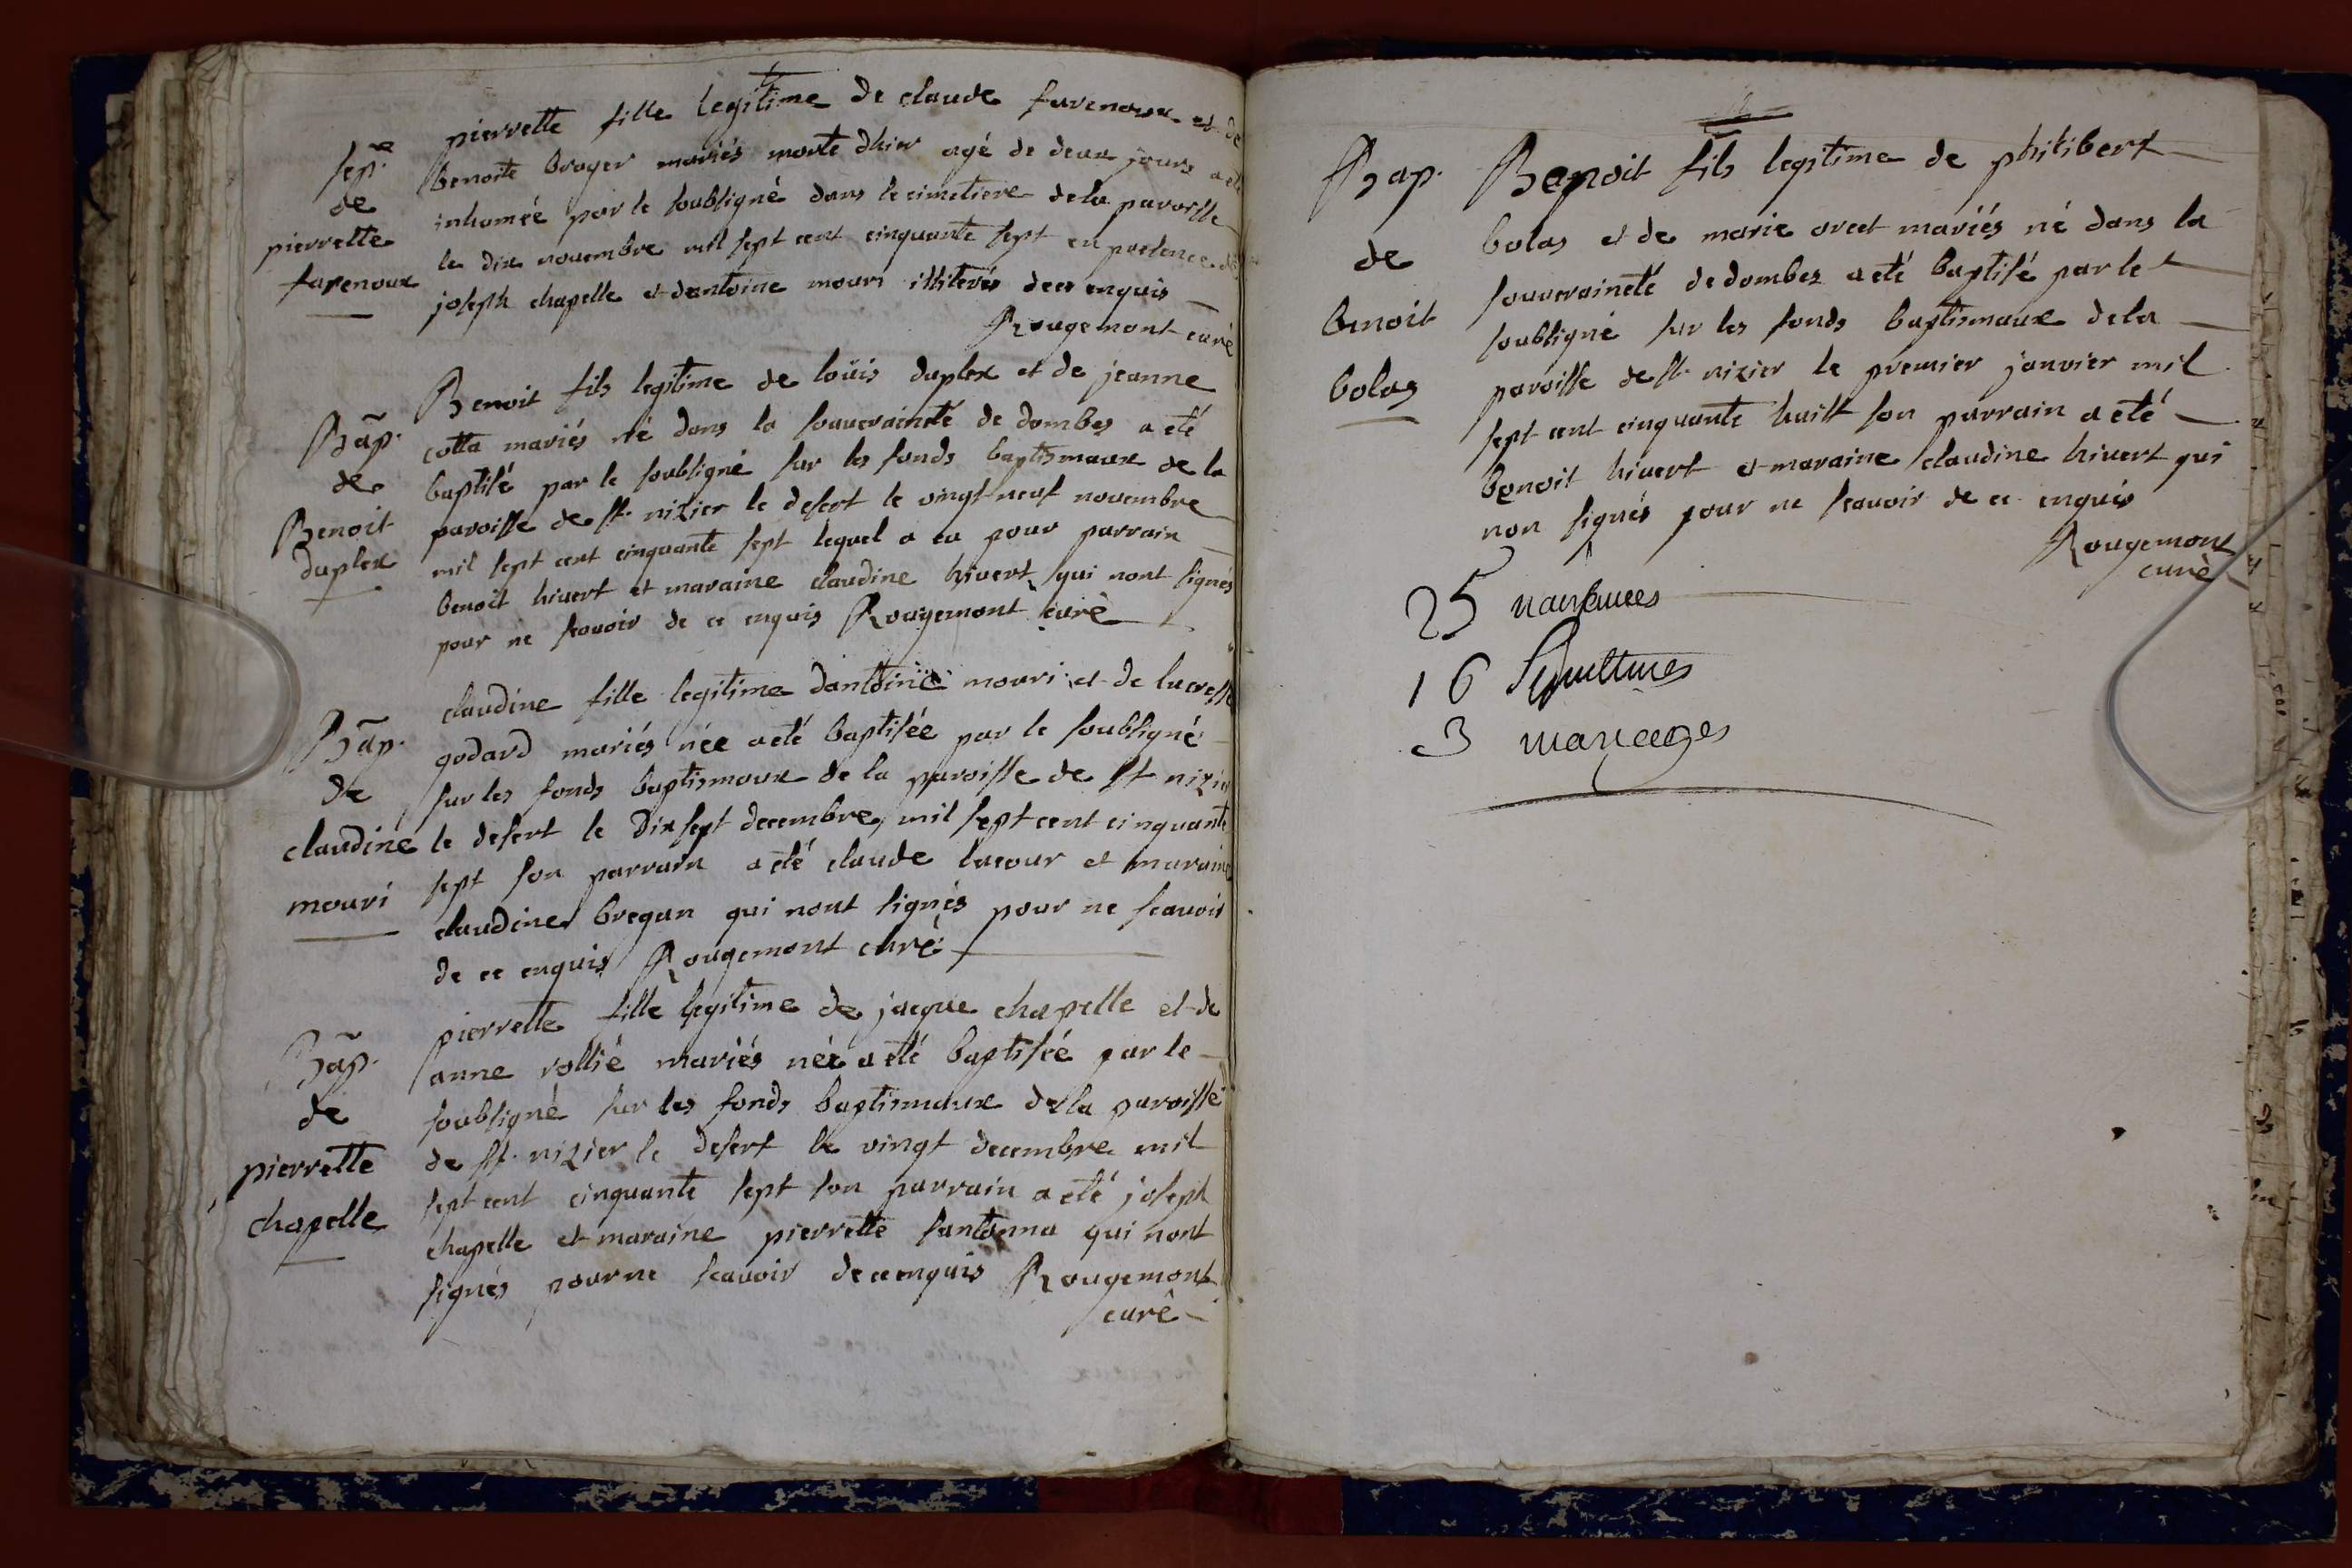 sep.re
de
pierrette
farenoux
pierrette fille legitime de claude farenoux et de
benoite broyer mariés morte dhier agé de deux jours a eté
inhumée par le soubsigné dans le cimetiere de la paroisse
le dix novembre mil sept cent cinquante sept en presence de
joseph chapelle et dantoine mouri illiterés de ce enquis
Rougemont curé
Bap.
de
Benoit
duplex
Benoit fils legitime de loüis duplex et de jeanne
cotta mariés né dans la souveraineté de dombes a eté
baptisé par le soubsigné sur les fonds baptismaux de la
paroisse de st. nizier le desert le vingt neuf novembre
mil sept cent cinquante sept lequel a eu pour parrain
benoit hivert et maraine claudine hivert qui nont signés
pour ne scavoir de ce enquis Rougemont curé
Bap.
de
claudine
mouri
claudine fille legitime dantoine mouri et de lucresse
godard mariés née a eté baptisée par le soubsigné
sur les fonds baptismaux de la paroisse de st nizier
le desert le dix sept decembre mil sept cent cinquante
sept son parrain a eté claude lacour et maraine
claudine bregan qui nont signés pour ne scavoir
de ce enquis Rougemont curé
Bap.
de
pierrette
chapelle
pierrette fille legitime de jacque chapelle et de
anne rollié mariés née a eté baptisée par le
soubsigné sur les fonds baptismaux de la paroisse
de st. nizier le desert le vingt decembre mil
sept cent cinquante sept son parrain a eté joseph
chapelle et maraine pierrette fantonna qui nont
signés pour ne scavoir de ce enquis Rougemont
curé
Bap.
de
benoit
bolas
Benoit fils legitime de philibert
bolas et de marie orcet mariés né dans la
souveraineté de dombes a eté baptisé par le
soubsigné sur les fonds baptismaux de la
paroisse de st. nizier le premier janvier mil
sept cent cinquante huit son parrain a eté
benoit hivert et maraine claudine hivert qui
non signés pour ne scavoir de ce enquis
Rougemont
curé
25 naissances
16 Sepultures
3 mariages